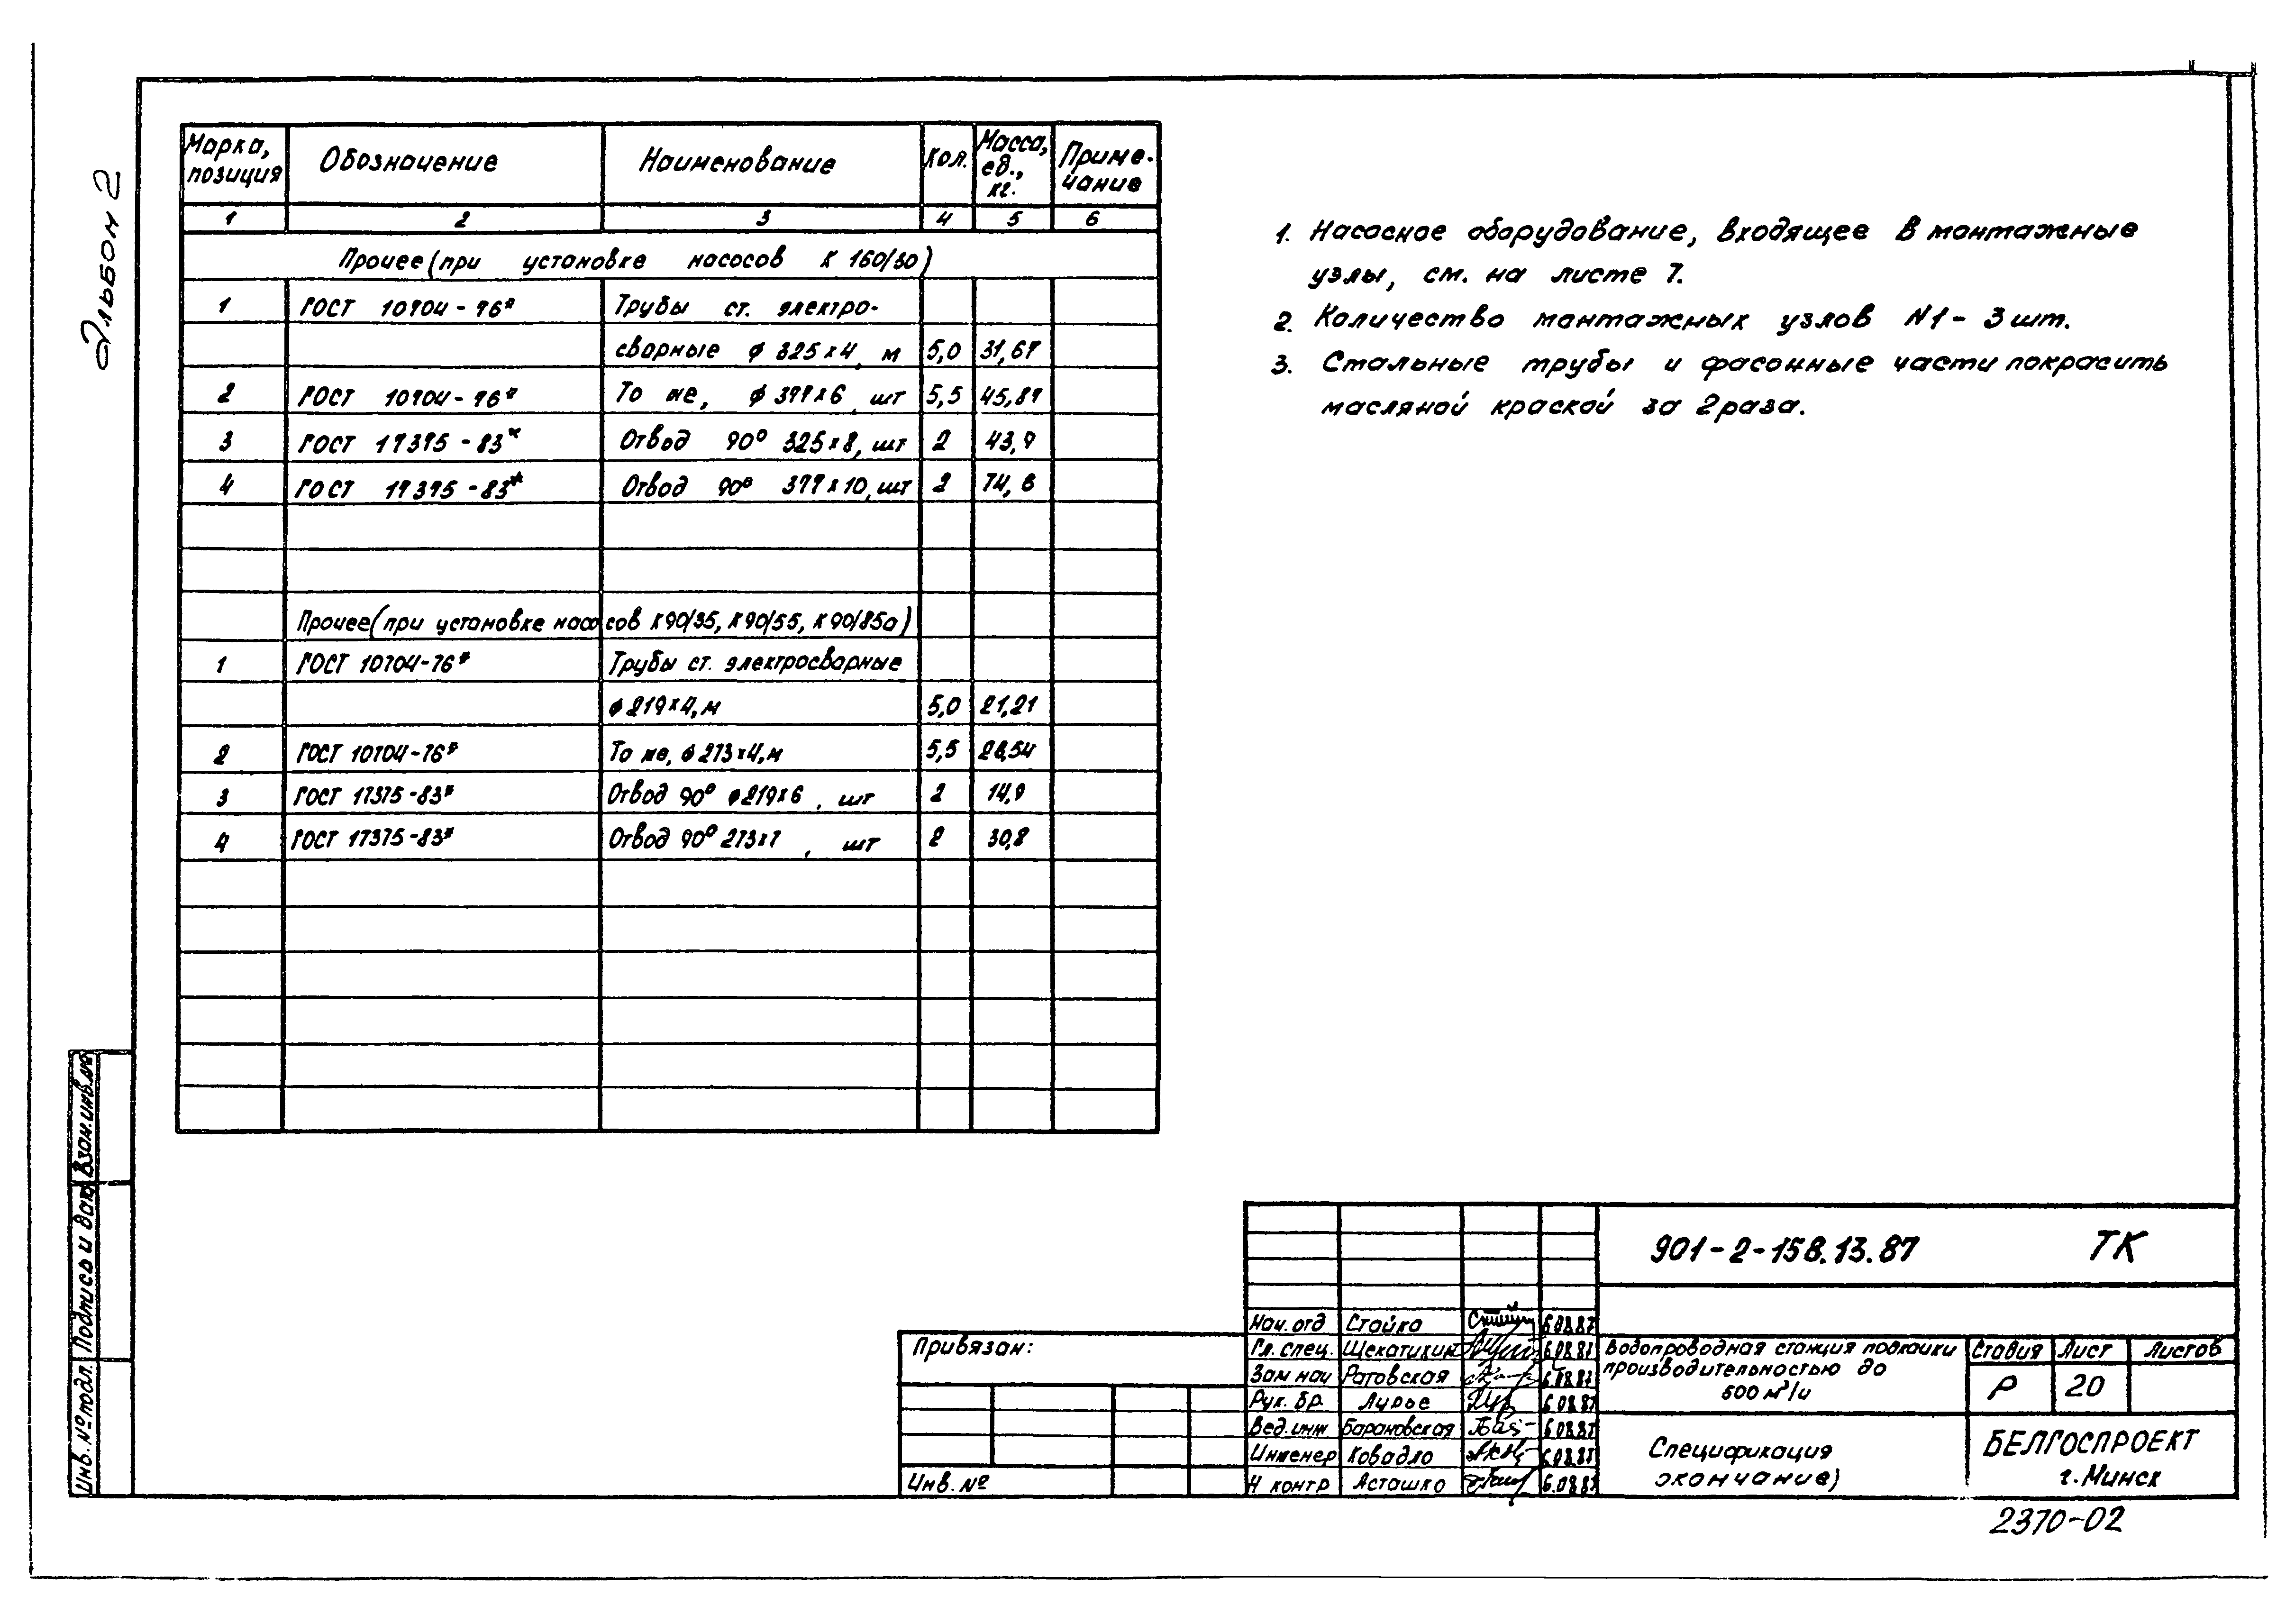 Альбом 2
Марка, позиция Обозначение Наименование Кол. Масса, ед., кг. Приме-чание
1 2 3 4 5 6
Прочее (при установке насосов К 160/30)
1 ГОСТ 10704-76* Трубы ст. электро-
сварные ϕ 325×4, м 5,0 31,67
2 ГОСТ 10704-76* То же, ϕ 377×6, шт 5,5 45,87
3 ГОСТ 17375-83* Отвод 90° 325×8, шт 2 43,9
4 ГОСТ 17375-83* Отвод 90° 377×10, шт 2 74,6
Прочее (при установке насосов К90/35, К90/55, К90/85а)
1 ГОСТ 10704-76* Трубы ст. электросварные
ϕ 219×4, м 5,0 21,21
2 ГОСТ 10704-76* То же, ϕ 273×4, м 5,5 26,54
3 ГОСТ 17375-83* Отвод 90° ϕ219×6, шт 2 14,9
4 ГОСТ 17375-83* Отвод 90° 273×7, шт 2 30,8
1. Насосное оборудование, входящее в монтажные
узлы, см. на листе 7.
2. Количество монтажных узлов N1 - 3 шт.
3. Стальные трубы и фасонные части покрасить
масляной краской за 2 раза.
Взам. инв. №
Подпись и дата
Инв. № подл.
Привязан:
Инв. №
901-2-158.13.87 ТК
Нач. отд Стайко 6.08.87
Гл. спец. Щекатихин 6.08.87
Зам нач Ратовская 6.08.87
Рук. бр. Лурье 6.08.87
Вед. инж Барановская 6.08.87
Инженер Ковадло 6.08.87
Н контр Асташко 6.08.87
Водопроводная станция подкачки
производительностью до
600 м³/ч
Стадия Лист Листов
Р 20
Спецификация
окончание)
БЕЛГОСПРОЕКТ
г. Минск
2370-02